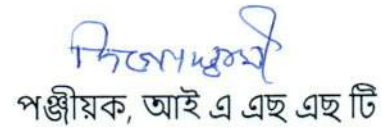 পঞ্জীয়ক, আই এ এছ এছ টি